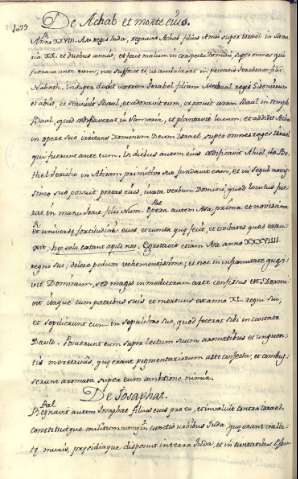 De Achab et morte eius.
Anno XXXVIII Asa regis Juda, regnavit Achab filius Amri super Israel in Sama
ria XX. et duobus annis, et fecit malum in conspectu Domini super omnes qui
fuerunt ante eum, nec suffecit ei ut ambularet in peccatis Jeroboam filii
Nabath. Insuper duxit uxorem Jezabel filiam Methaal regis Sidoniorum
et abiit, et servivit Baal, et adoravit eum, et posuit aram Baal in templo
Baal, quod aedificaverat in Samaria, et plantavit lucum, et addidit Achab
in opere suo irritans Dominum Deum Israel super omnes reges Israel
qui fuerunt ante eum. In diebus autem eius aedificavit Ahiel, de Be
thel Jericho in Abiram, primitivo suo fundavit eam, et in Segub novis
simo suo posuit portas eius, iuxta verbum Domini quod locutus fue
rat in manu Josue filii Nun. Opera autem Asa, prima et novissima
et universa fortitudines eius, et cuncta que fecit, et civitates quas extru
xit, Aegrotavit etiam Asa anno XXXVIIII
regni sui, dolore pedum vehementissimo, et nec in infirmitate quaesi
vit Dominum, sed magis in medicorum arte confisus est. Dormi
vit itaque cum patribus suis et mortuus est anno XL regni sui,
et sepelierunt eum in sepulchro suo, quod foderat sibi in civitate
David. Posuerunt eum super lectum suum aromatibus et unguen
tis meretriciis, que erant pigmentariorum arte confecta, et combus
serunt aromata super eum ambitione nimia.
De Josaphat.
Regnavit autem Josaphat filius eius pro eo, et invaluit contra Israel.
constituitque militum numeros in cunctis urbibus Juda, que erant valla
te muris, presidiaque disposuit in terra Juda, et in civitatibus